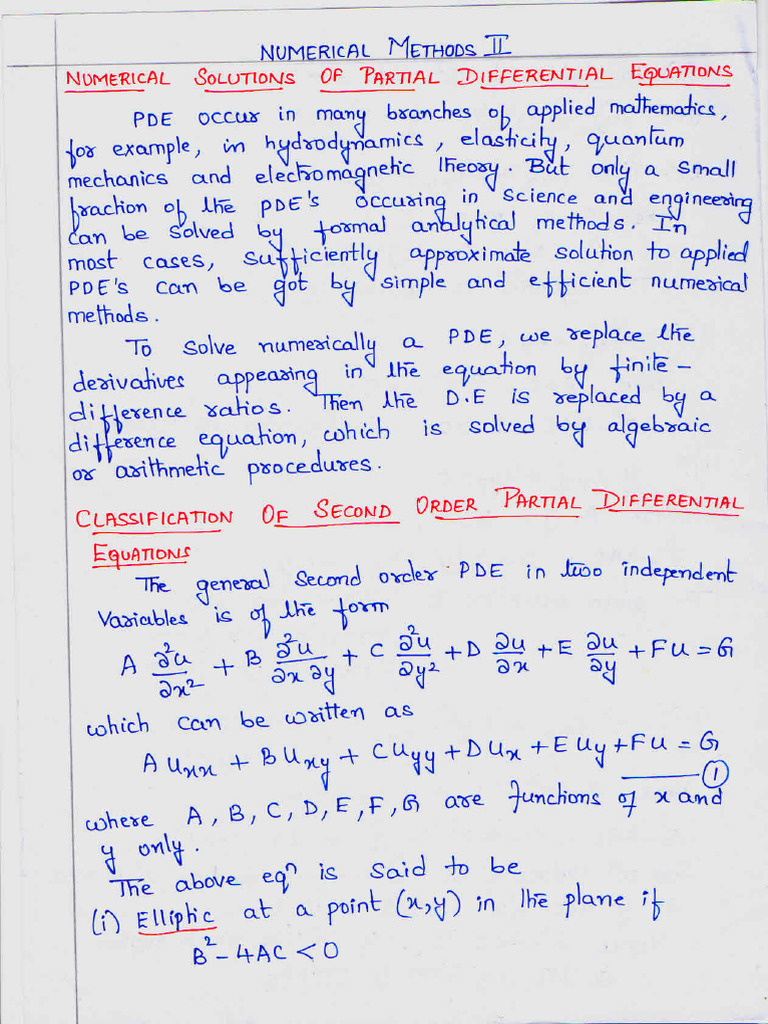 NUMERICAL METHODS II
NUMERICAL SOLUTIONS OF PARTIAL DIFFERENTIAL EQUATIONS
PDE occur in many branches of applied mathematics,
for example, in hydrodynamics, elasticity, quantum
mechanics and electromagnetic theory. But only a small
fraction of the PDE's occuring in science and engineering
can be solved by formal analytical methods. In
most cases, sufficiently approximate solution to applied
PDE's can be got by simple and efficient numerical
methods.
To solve numerically a PDE, we replace the
derivatives appearing in the equation by finite-
difference ratios. Then the D.E is replaced by a
difference equation, which is solved by algebraic
or arithmetic procedures.
CLASSIFICATION OF SECOND ORDER PARTIAL DIFFERENTIAL
EQUATIONS
The general second order PDE in two independent
Variables is of the form
A ∂²u/∂x² + B ∂²u/∂x∂y + C ∂²u/∂y² + D ∂u/∂x + E ∂u/∂y + Fu = G
which can be written as
A Uxx + B Uxy + C Uyy + D Ux + E Uy + F U = G
—— ①
where A, B, C, D, E, F, G are functions of x and
y only.
The above eqⁿ is said to be
(i) Elliptic at a point (x,y) in the plane if
B² - 4AC < 0